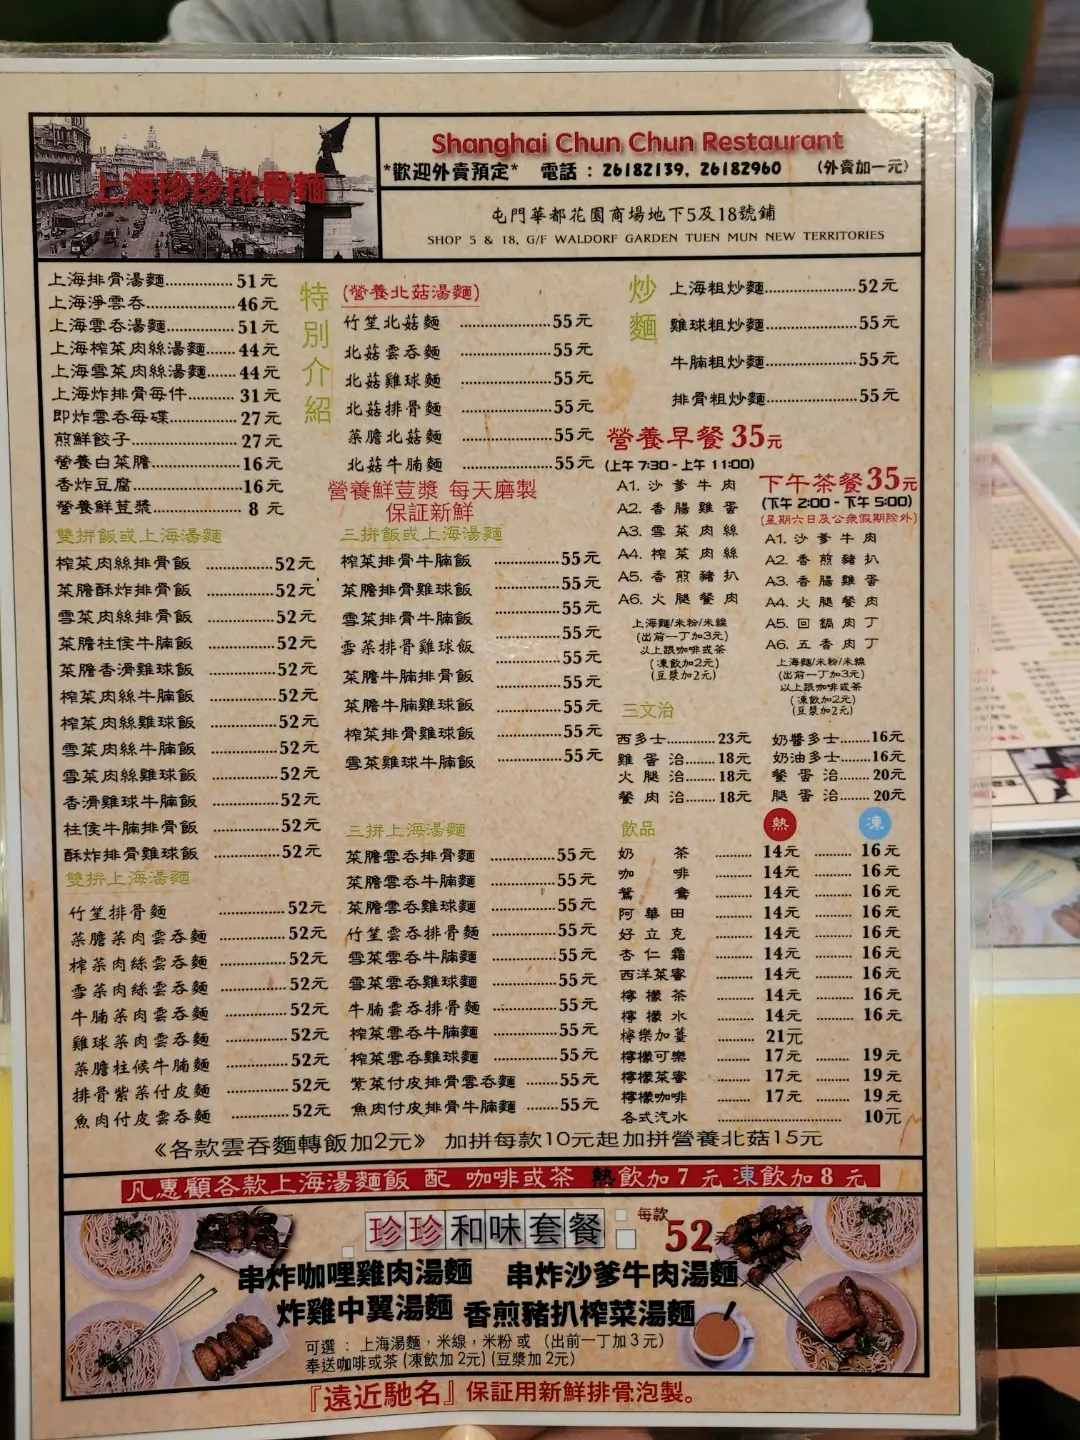 上海珍珍排骨麵
Shanghai Chun Chun Restaurant
*歡迎外賣預定* 電話：26182139, 26182960 (外賣加一元)
屯門華都花園商場地下5及18號鋪
SHOP 5 & 18, G/F WALDORF GARDEN TUEN MUN NEW TERRITORIES
上海排骨湯麵 51元
上海淨雲吞 46元
上海雲吞湯麵 51元
上海榨菜肉絲湯麵 44元
上海雪菜肉絲湯麵 44元
上海炸排骨每件 31元
即炸雲吞每碟 27元
煎鮮餃子 27元
營養白菜膽 16元
香炸豆腐 16元
營養鮮荳漿 8元
特別介紹
(營養北菇湯麵)
竹笙北菇麵 55元
北菇雲吞麵 55元
北菇雞球麵 55元
北菇排骨麵 55元
菜膽北菇麵 55元
北菇牛腩麵 55元
營養鮮荳漿 每天磨製
保証新鮮
炒麵
上海粗炒麵 52元
雞球粗炒麵 55元
牛腩粗炒麵 55元
排骨粗炒麵 55元
營養早餐35元
(上午 7:30 - 上午 11:00)
A1. 沙爹牛肉
A2. 香腸雞蛋
A3. 雪菜肉絲
A4. 榨菜肉絲
A5. 香煎豬扒
A6. 火腿餐肉
上海麵/米粉/米線
(出前一丁加3元)
以上跟咖啡或茶
(凍飲加2元)
(豆漿加2元)
下午茶餐35元
(下午 2:00 - 下午 5:00)
(星期六日及公衆假期除外)
A1. 沙爹牛肉
A2. 香煎豬扒
A3. 香腸雞蛋
A4. 火腿餐肉
A5. 回鍋肉丁
A6. 五香肉丁
上海麵/米粉/米線
(出前一丁加3元)
以上跟咖啡或茶
(凍飲加2元)
(豆漿加2元)
雙拼飯或上海湯麵
榨菜肉絲排骨飯 52元
菜膽酥炸排骨飯 52元
雪菜肉絲排骨飯 52元
菜膽柱侯牛腩飯 52元
菜膽香滑雞球飯 52元
榨菜肉絲牛腩飯 52元
榨菜肉絲雞球飯 52元
雪菜肉絲牛腩飯 52元
雪菜肉絲雞球飯 52元
香滑雞球牛腩飯 52元
柱侯牛腩排骨飯 52元
酥炸排骨雞球飯 52元
三拼飯或上海湯麵
榨菜排骨牛腩飯 55元
菜膽排骨雞球飯 55元
雪菜排骨牛腩飯 55元
雪菜排骨雞球飯 55元
菜膽牛腩排骨飯 55元
菜膽牛腩雞球飯 55元
榨菜排骨雞球飯 55元
雪菜雞球牛腩飯 55元
55元
三文治
西多士 23元
雞蛋治 18元
火腿治 18元
餐肉治 18元
奶醬多士 16元
奶油多士 16元
餐蛋治 20元
腿蛋治 20元
雙拼上海湯麵
竹笙排骨麵 52元
菜膽菜肉雲吞麵 52元
榨菜肉絲雲吞麵 52元
雪菜肉絲雲吞麵 52元
牛腩菜肉雲吞麵 52元
雞球菜肉雲吞麵 52元
菜膽柱候牛腩麵 52元
排骨紫菜付皮麵 52元
魚肉付皮雲吞麵 52元
三拼上海湯麵
菜膽雲吞排骨麵 55元
菜膽雲吞牛腩麵 55元
菜膽雲吞雞球麵 55元
竹笙雲吞排骨麵 55元
雪菜雲吞牛腩麵 55元
雪菜雲吞雞球麵 55元
牛腩雲吞排骨麵 55元
榨菜雲吞牛腩麵 55元
榨菜雲吞雞球麵 55元
紫菜付皮排骨雲吞麵 55元
魚肉付皮排骨牛腩麵 55元
飲品 熱 凍
奶茶 14元 16元
咖啡 14元 16元
鴛鴦 14元 16元
阿華田 14元 16元
好立克 14元 16元
杏仁霜 14元 16元
西洋菜蜜 14元 16元
檸檬茶 14元 16元
檸檬水 14元 16元
檸樂加薑 21元
檸檬可樂 17元 19元
檸檬菜蜜 17元 19元
檸檬咖啡 17元 19元
各式汽水 10元
《各款雲吞麵轉飯加2元》 加拼每款10元起加拼營養北菇15元
凡惠顧各款上海湯麵飯 配 咖啡或茶 熱飲加7元凍飲加8元
珍珍和味套餐 每款52元
串炸咖哩雞肉湯麵 串炸沙爹牛肉湯麵
炸雞中翼湯麵 香煎豬扒榨菜湯麵
可選：上海湯麵，米線，米粉 或 (出前一丁加3元)
奉送咖啡或茶 (凍飲加2元) (豆漿加2元)
『遠近馳名』保証用新鮮排骨泡製。